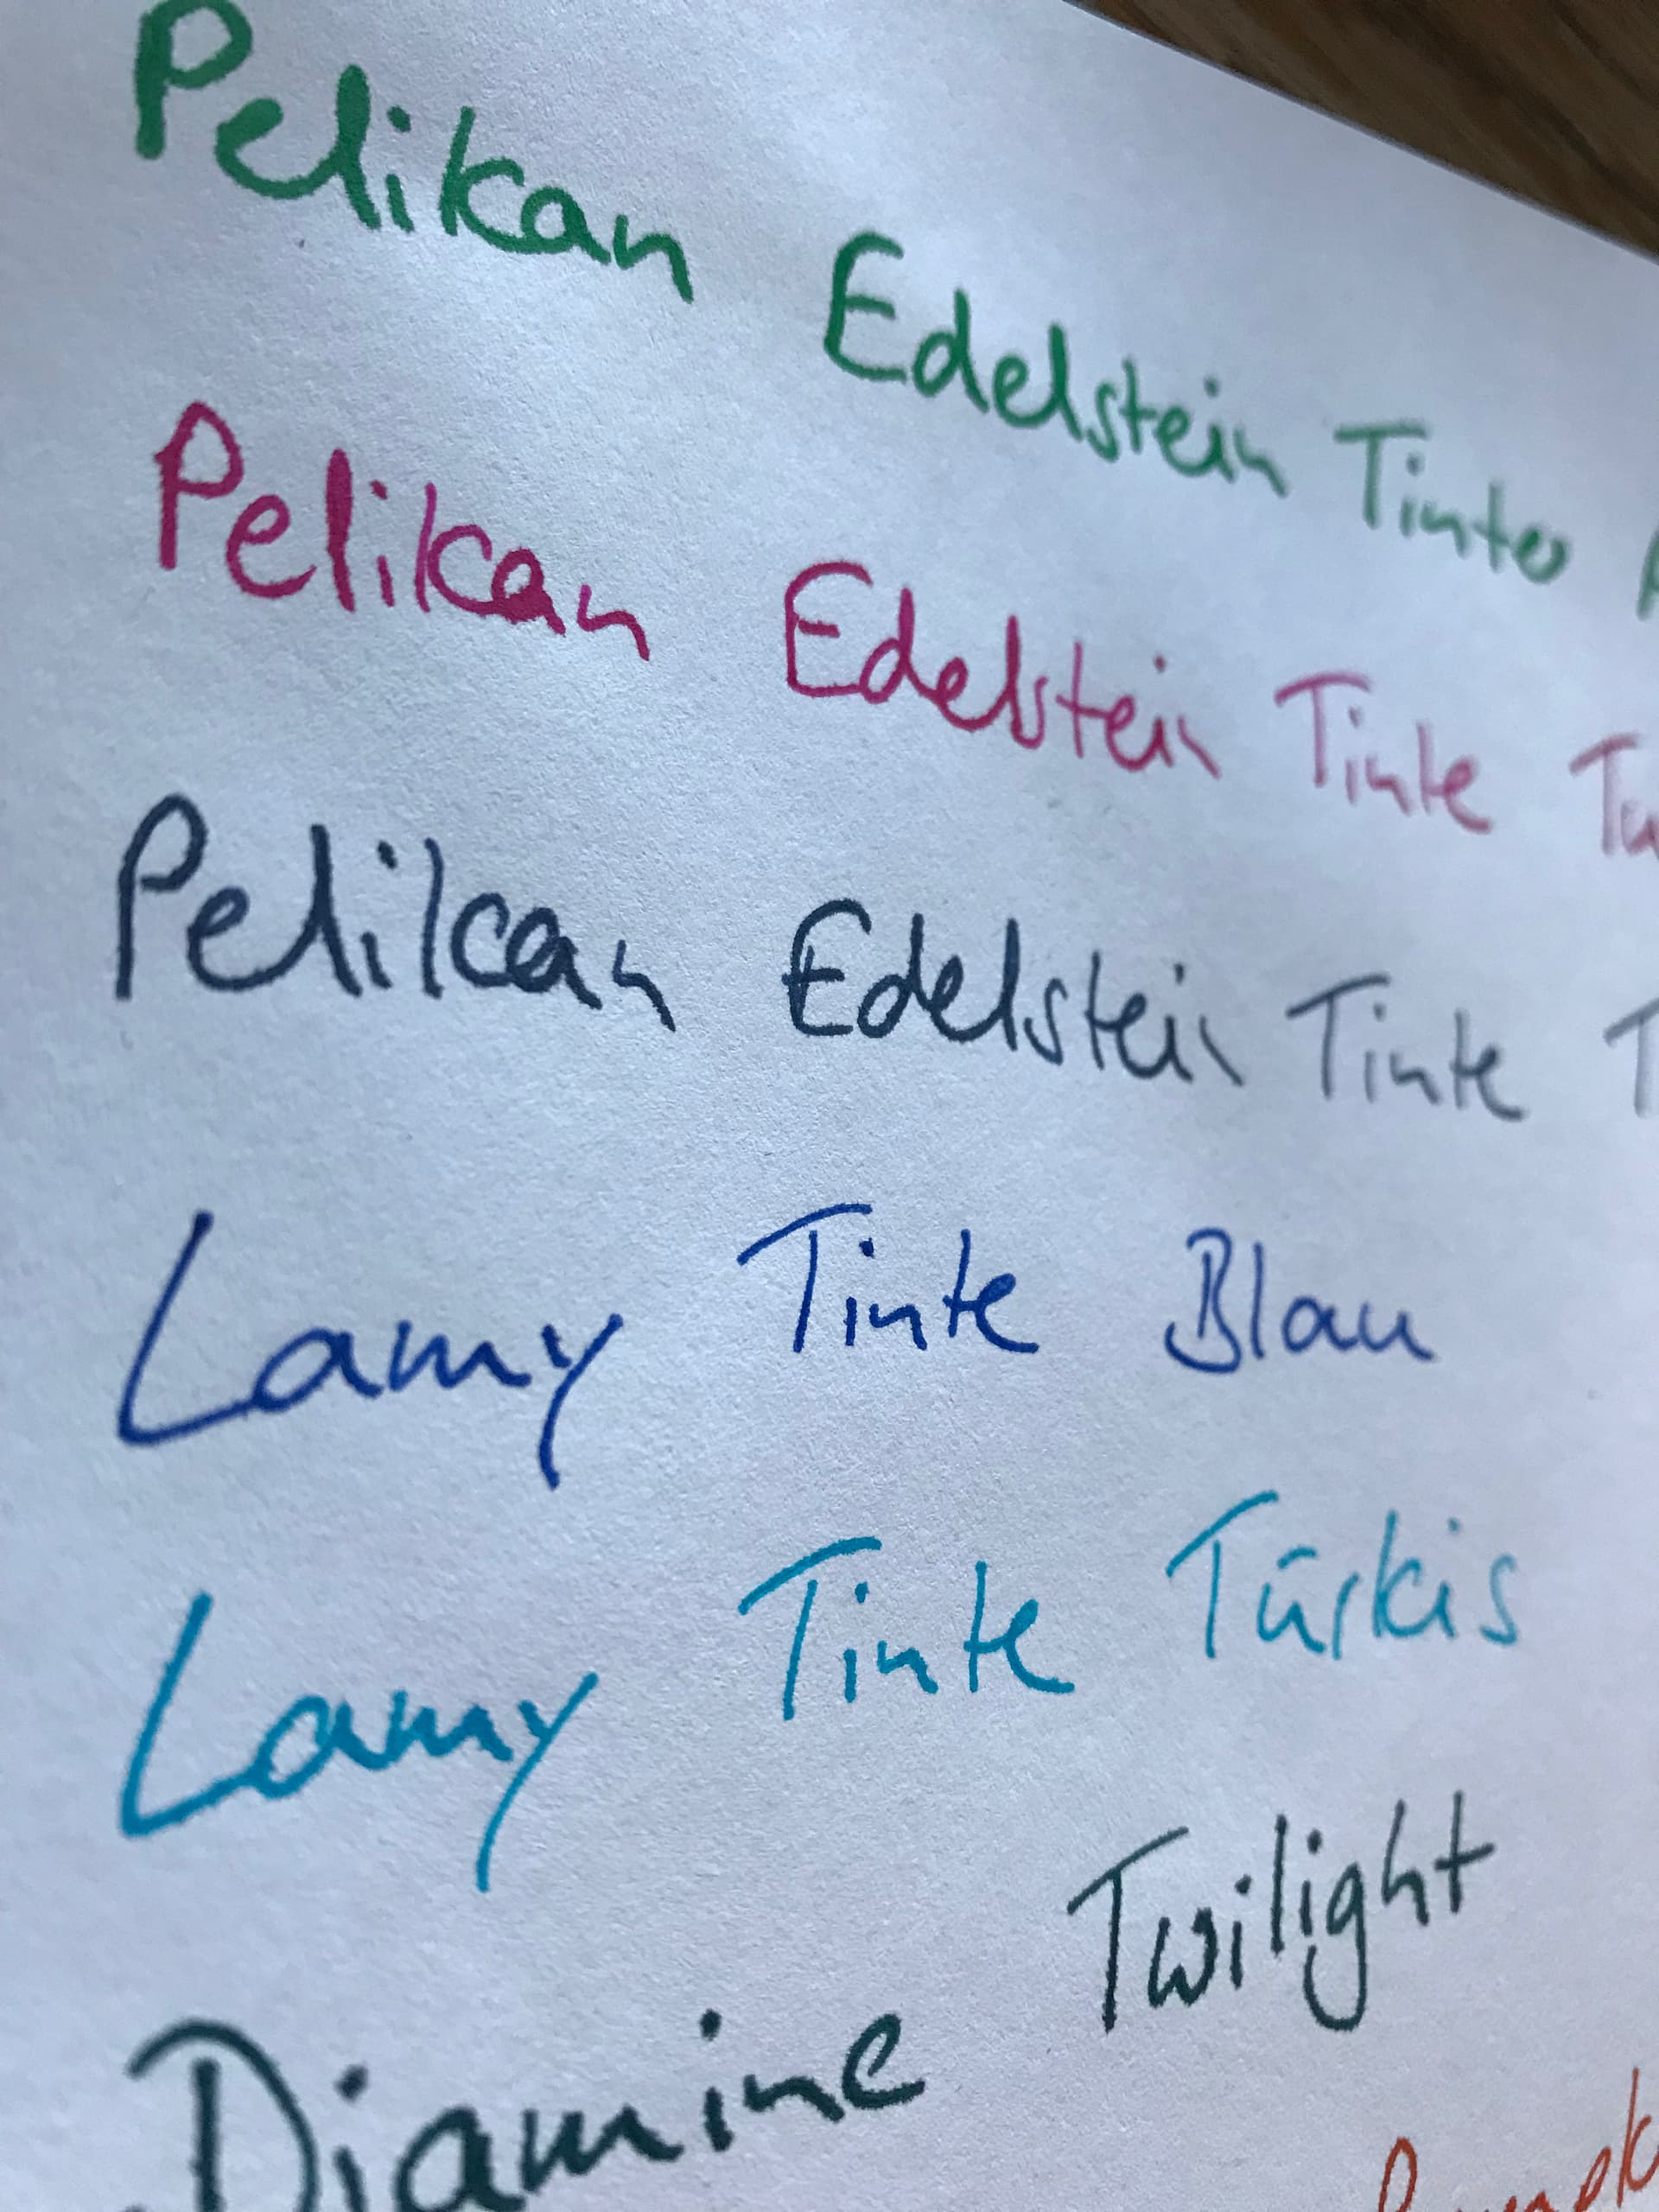 Pelikan Edelstein Tinte
Pelikan Edelstein Tinte
Pelikan Edelstein Tinte
Lamy Tinte Blau
Lamy Tinte Türkis
Diamine Twilight